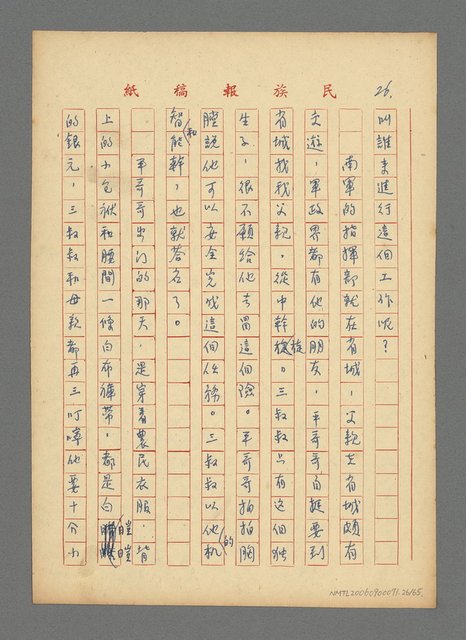 民族報稿紙
26.
叫誰來進行這個工作呢？
南軍的指揮部就在省城，父親在省城頗有
交遊，軍政界都有他的朋友，平哥哥自挺要到
省城找我父親，從中幹旋。三叔叔只有这個独
生子，很不願給他去冒這個險。平哥哥拍拍胸
膛說他可以安全完成這個任務。三叔叔以他的机
智和能幹，也就答名了。
平哥哥出门的那天，是穿着農民衣服，揹
上的小包袱和腰間一條白布褲带，都是白皚皚
的銀元，三叔叔和母親都再三叮嚀他要十分小
NMTL20060900071.26/65